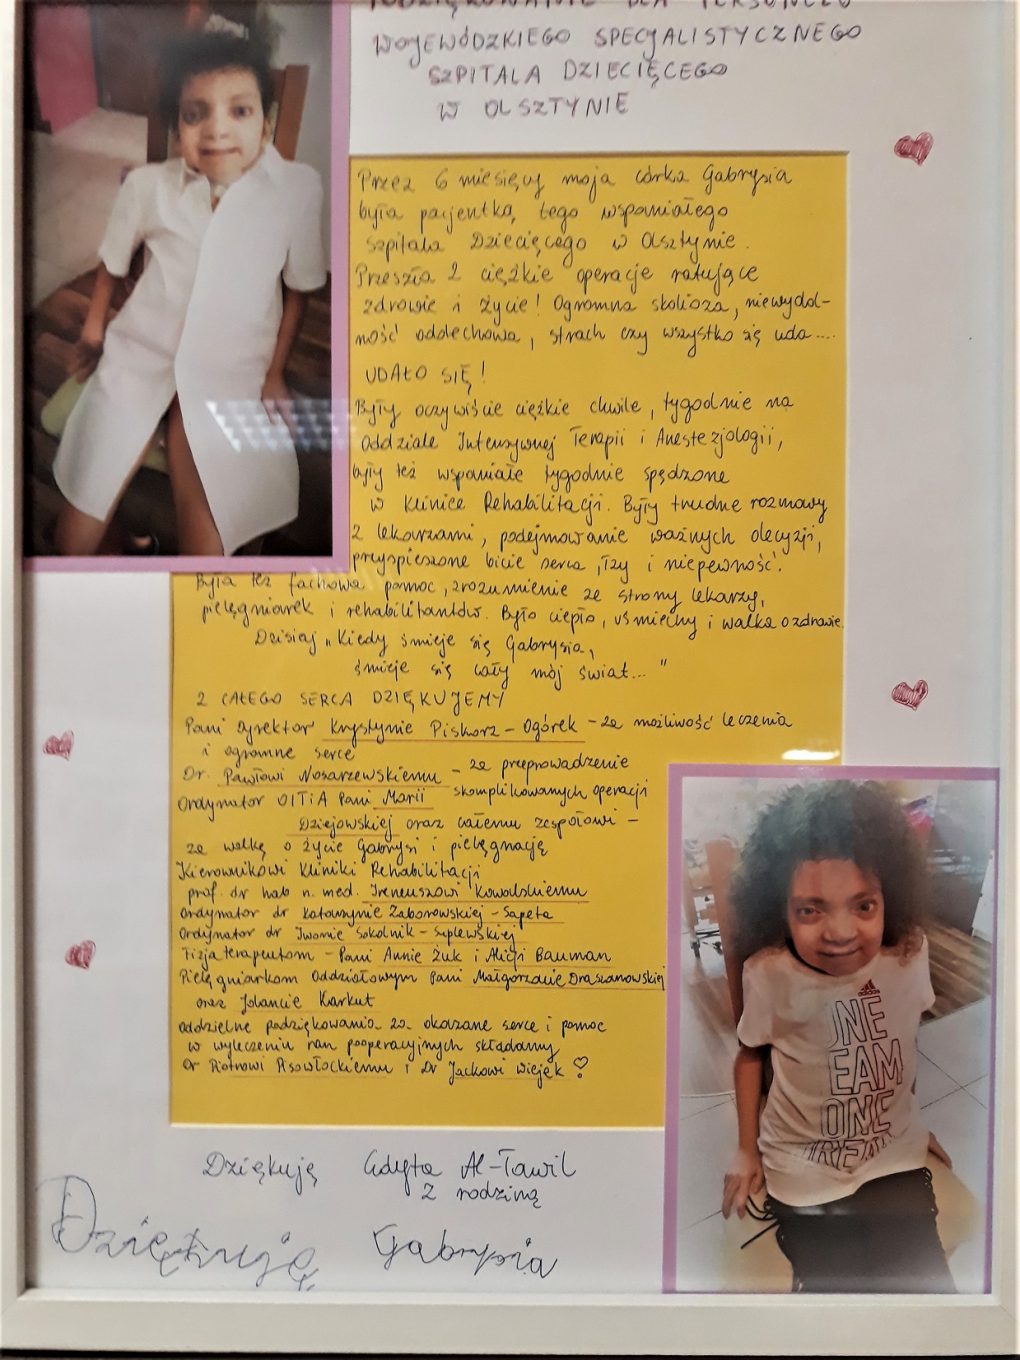 PODZIĘKOWANIE DLA PERSONELU
WOJEWÓDZKIEGO SPECJALISTYCZNEGO
SZPITALA DZIECIĘCEGO
W OLSZTYNIE
Przez 6 miesięcy moja córka Gabrysia
była pacjentką tego wspaniałego
szpitala Dziecięcego w Olsztynie.
Przeszła 2 ciężkie operacje ratujące
zdrowie i życie! Ogromna skolioza, niewydol-
ność oddechowa, strach czy wszystko się uda....
UDAŁO SIĘ!
Były oczywiście ciężkie chwile, tygodnie na
oddziale Intensywnej Terapii i Anestezjologii,
były też wspaniałe tygodnie spędzone
w Klinice Rehabilitacji. Były trudne rozmowy
z lekarzami, podejmowanie ważnych decyzji,
przyspieszone bicie serca, łzy i niepewność.
Była też fachowa pomoc, zrozumienie ze strony lekarzy,
pielęgniarek i rehabilitantów. Było ciepło, uśmiechy i walka o zdrowie.
Dzisiaj „Kiedy śmieje się Gabrysia,
śmieje się cały mój świat..."
Z CAŁEGO SERCA DZIĘKUJEMY
Pani Dyrektor Krystynie Piskorz-Ogórek - za możliwość leczenia
i ogromne serce
Dr. Pawłowi Nosarzewskiemu - za przeprowadzenie
skomplikowanych operacji
Ordynator OITiA Pani Marii
Dziejowskiej oraz całemu zespołowi -
za walkę o życie Gabrysi i pielęgnację
Kierownikowi Kliniki Rehabilitacji
prof. dr hab n. med. Ireneuszowi Kowalskiemu
Ordynator dr Katarzynie Zaborowskiej-Sapeta
Ordynator dr Iwonie Sokolnik-Suplewskiej
Fizjoterapeutom - Pani Annie Żuk i Alicji Bauman
Pielęgniarkom Oddziałowym Pani Małgorzacie Draszanowskiej
oraz Jolancie Karkut
oddzielne podziękowania za okazane serce i pomoc
w wyleczeniu ran pooperacyjnych składamy
Dr Piotrowi i Dr Jackowi Wiejek
Dziękuję Edyta Al-Tawil
z rodziną
Dziękuję Gabrysia
ONE
TEAM
ONE
DREAM